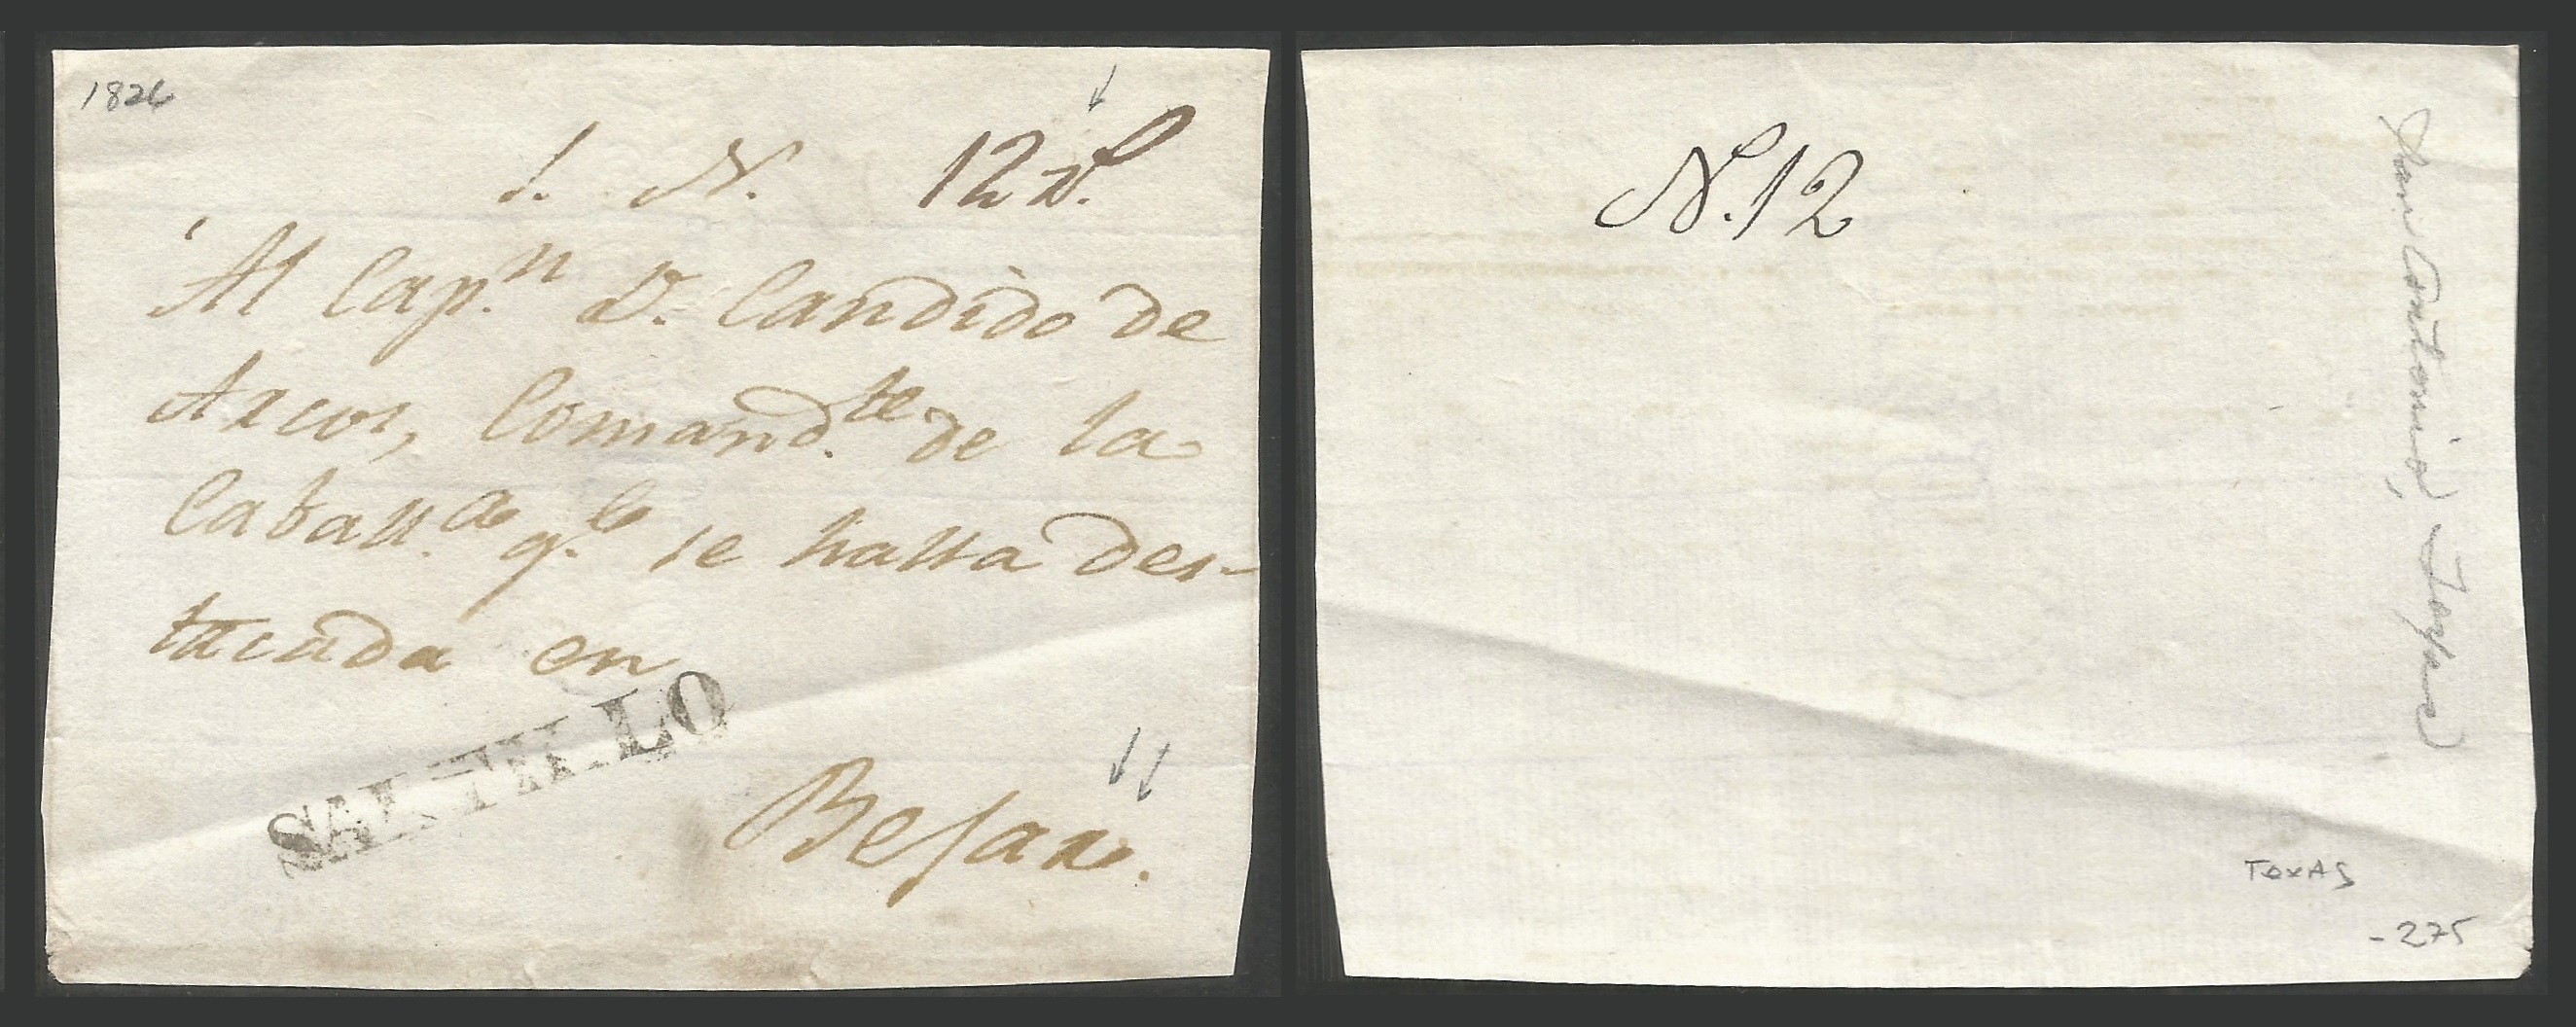 1824
S. N. 12 rs.
Al Cap.n D. Candido de
Arcos, Comand.te de la
Caball.a q.e se halla des-
tacada en
SALTILLO
Bejar.
No. 12
San Antonio, Texas
TEXAS
-275